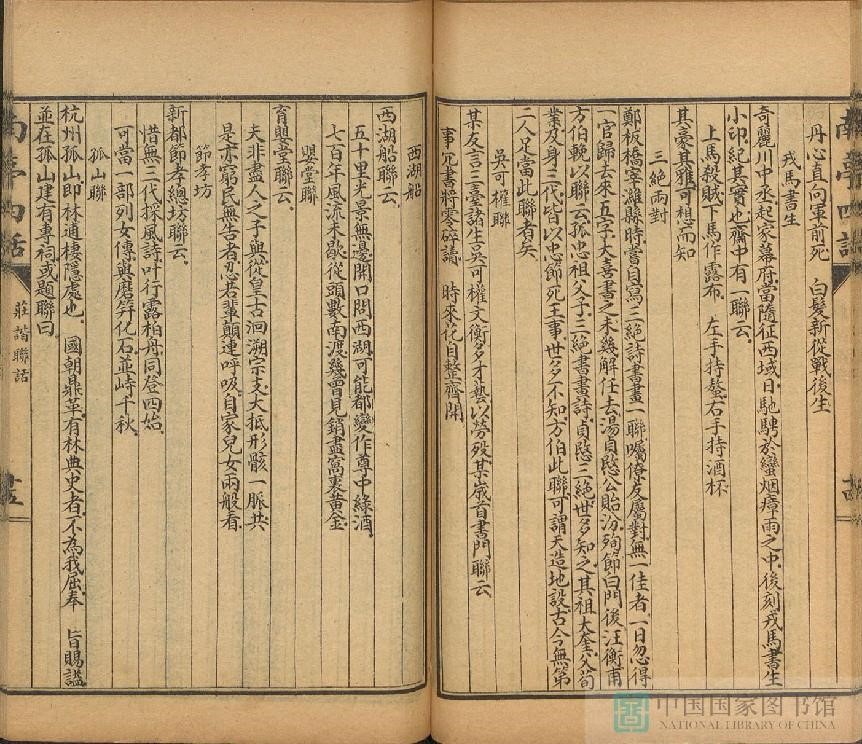 丹心直向軍前死　白髮新從戰後生
戎馬書生
奇麗川中丞起家幕府當隨征西域日馳騁於蠻烟瘴雨之中後刻戎馬書生
小印紀其實也齋中有一聯云
上馬殺賊下馬作露布　左手持螯右手持酒杯
其豪其雅可想而知
三絕兩對
鄭板橋宰濰縣時嘗自寫三絕詩書畫一聯囑僚友屬對無一佳者一日忽得
一官歸去來五字大喜書之未幾解任去湯貞愍公貽汾殉節白門後汪衡甫
方伯輓以聯云孤忠祖父子三絕書畫詩貞愍三絕世多知之其祖大奎父荀
業及身三代皆以忠節死王事世多不知方伯此聯可謂天造地設古今無第
二人足當此聯者矣
吳可權聯
某友言三臺諸生吳可權文衡多才藝以勞歿某歲首書門聯云
事冗書將零碎讀　時來花自整齊開
西湖船
西湖船聯云
五十里光景無邊開口問西湖可能都變作尊中綠酒
七百年風流未歇從頭數南渡幾曾見銷盡窩裏黃金
嬰堂聯
育嬰堂聯云
夫非盡人之子與從皇古洄溯宗支大抵形骸一脈共
是亦窮民無告者忍若輩顛連呼吸自家兒女兩般看
節孝坊
新都節孝總坊聯云
惜無三代採風詩叶行露柏舟同登四始
可當一部列女傳與磨笄化石並峙千秋
孤山聯
杭州孤山即林逋棲隱處也　國朝鼎革有林典史者不為我屈奉　旨賜諡
並在孤山建有專祠或題聯曰
莊諧聯話
中国国家图书馆
NATIONAL LIBRARY OF CHINA